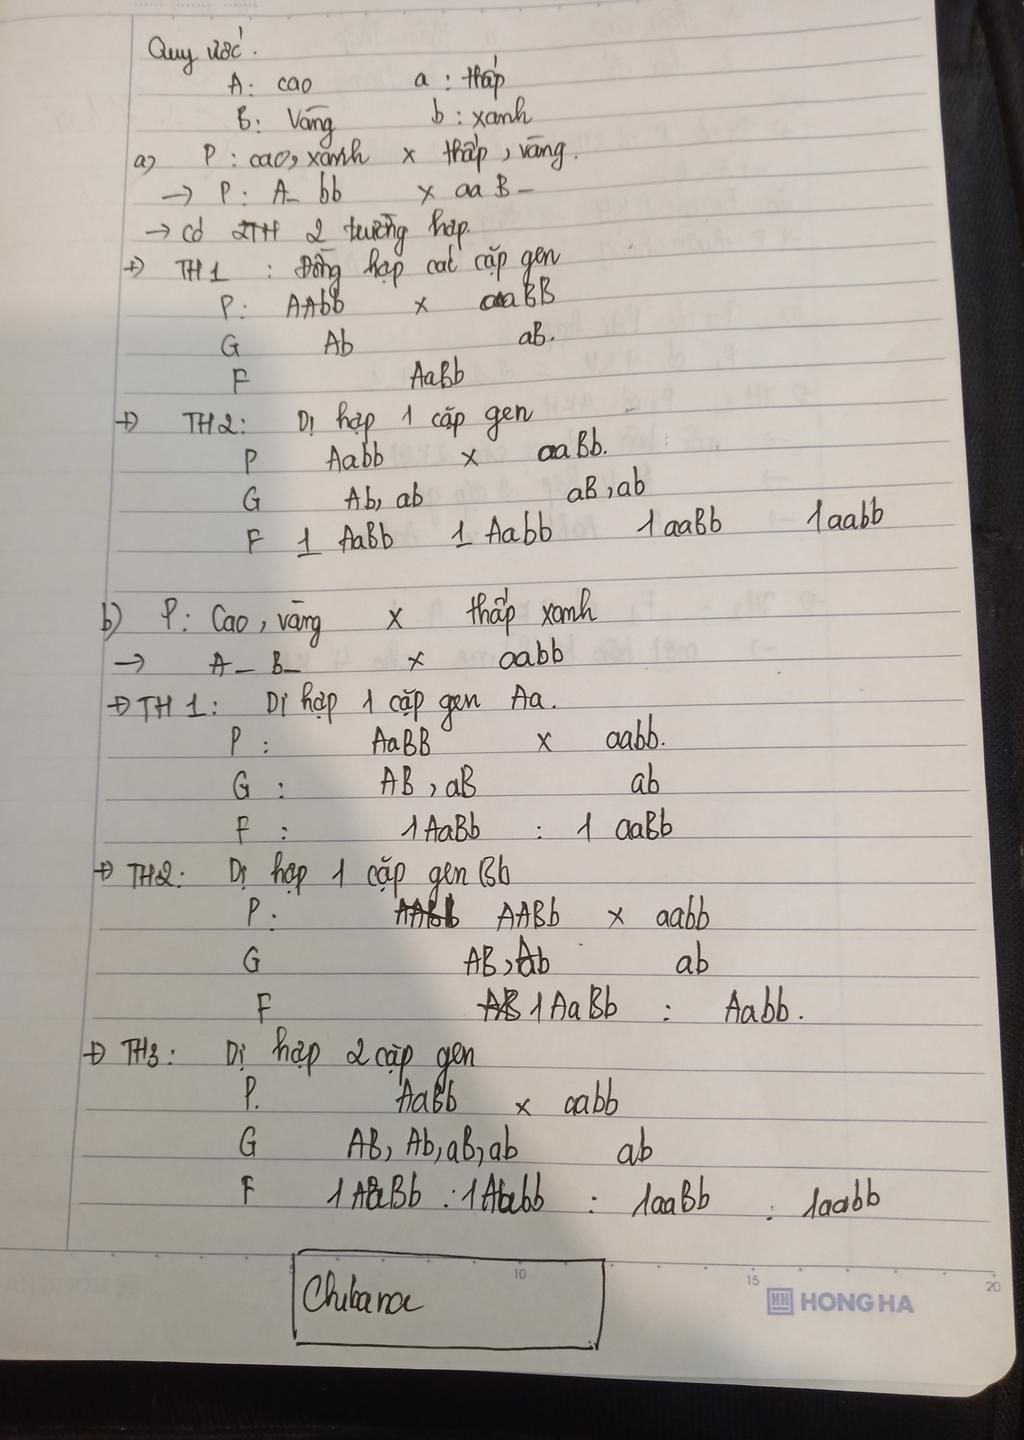 Quy ước.
A: cao a: thấp
B: Vàng b: xanh
a) P: cao, xanh x thấp, vàng.
→ P: A_ bb x aa B_
→ có 2TH 2 trường hợp.
+) TH1: Đồng hợp các cặp gen
P: AAbb x aaBB
G Ab aB.
F AaBb
+) TH2: Dị hợp 1 cặp gen
P Aabb x aaBb.
G Ab, ab aB, ab
F 1 AaBb 1 Aabb 1 aaBb 1aabb
b) P: Cao, vàng x thấp xanh
→ A_ B_ x aabb
+) TH 1: Dị hợp 1 cặp gen Aa.
P: AaBB x aabb.
G: AB, aB ab
F: 1AaBb : 1 aaBb
+) TH2: Dị hợp 1 cặp gen Bb
P: AABb x aabb
G AB, Ab ab
F 1 AaBb : Aabb.
+) TH3: Dị hợp 2 cặp gen
P. AaBb x aabb
G AB, Ab, aB, ab ab
F 1 AaBb : 1 Aabb : 1aaBb : 1aabb
Chibanoc
10 15 20
HH HONG HA